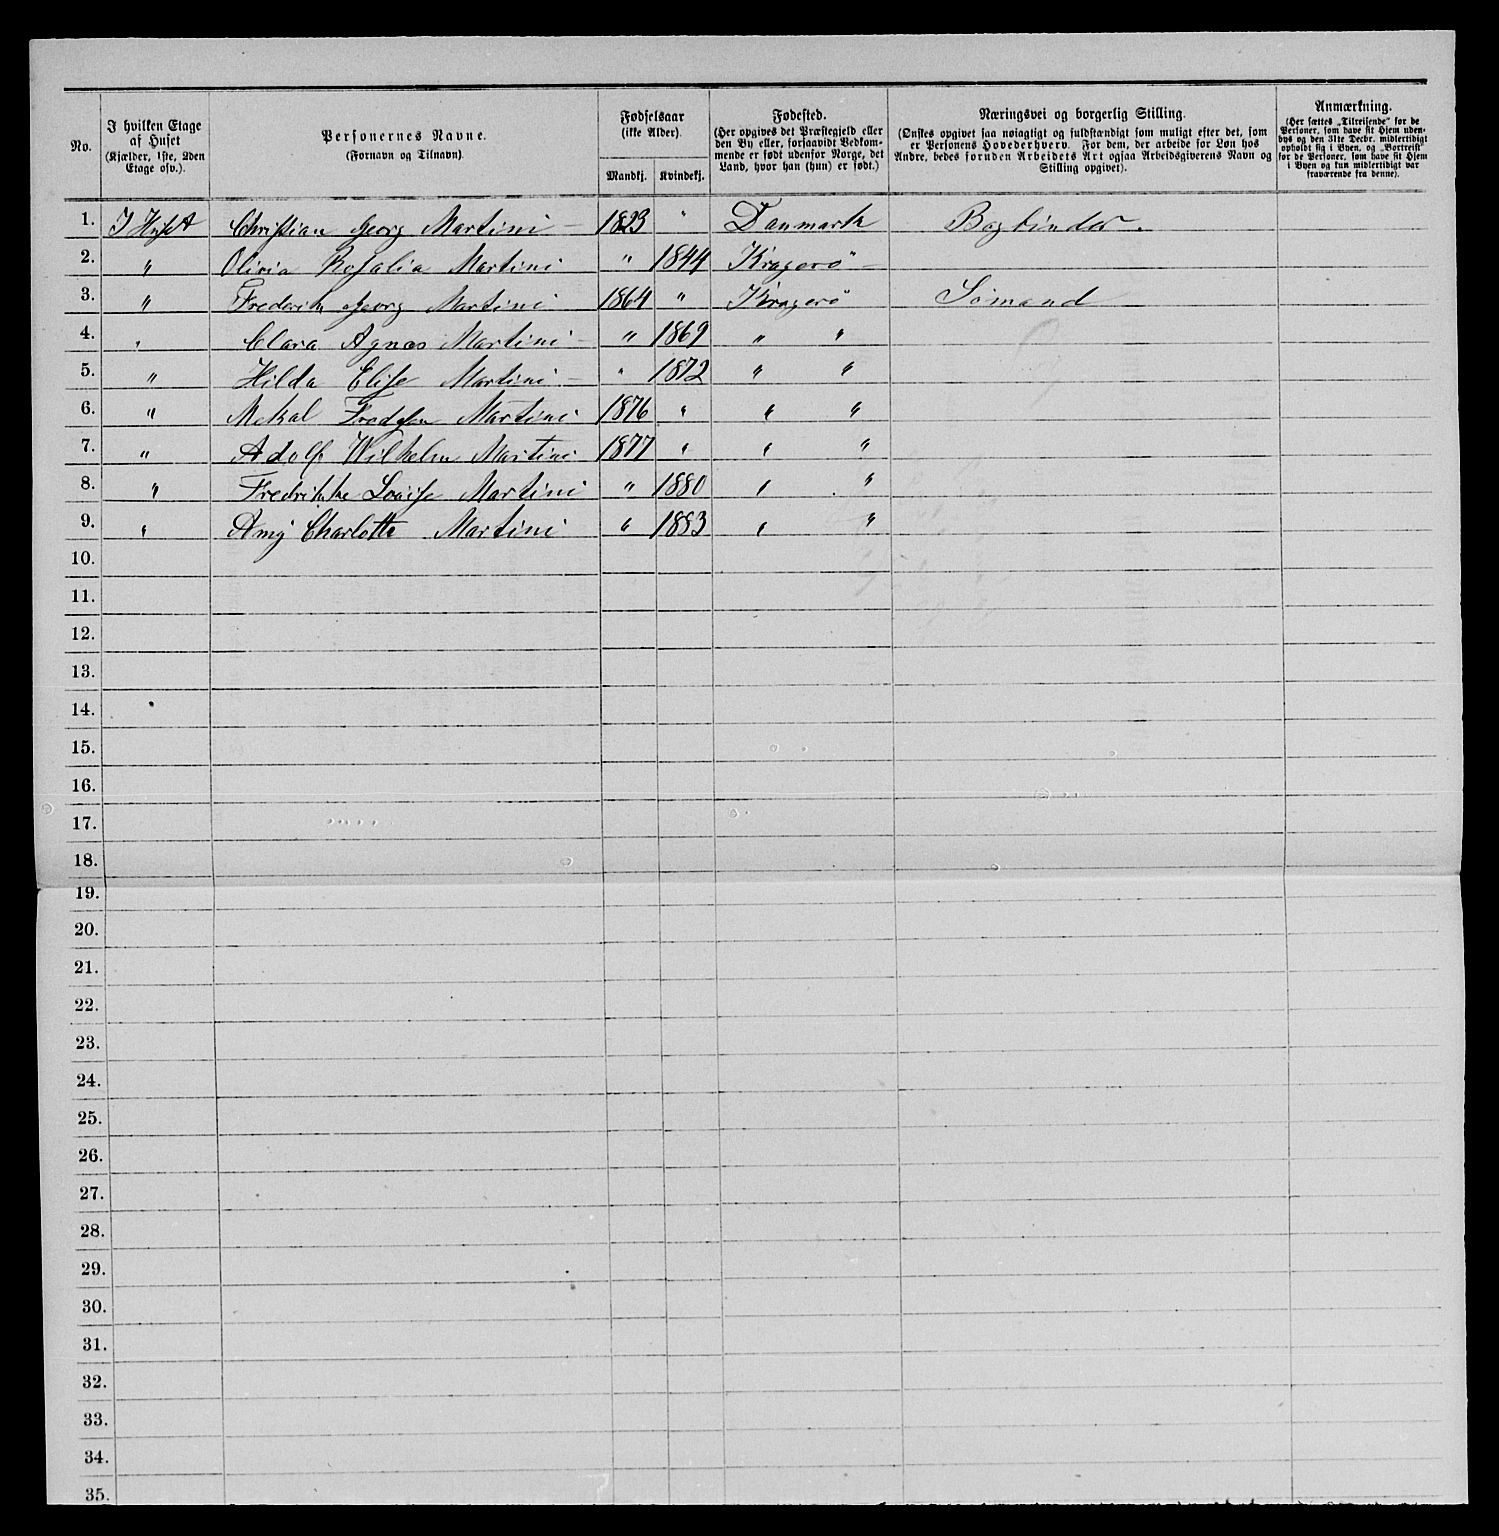 No.
I hvilken Etage
af Huset
(Kjælder, 1ste, 2den
Etage osv.).
Personernes Navne.
(Fornavn og Tilnavn).
Fødselsaar
(ikke Alder).
Mandkj. Kvindekj.
Fødested.
(Her opgives det Præstegjeld eller
den By eller, forsaavidt Vedkom-
mende er født udenfor Norge, det
Land, hvor han (hun) er født.)
Næringsvei og borgerlig Stilling.
(Ønskes opgivet saa nøiagtigt og fuldstændigt som muligt efter det, som
er Personens Hovederhverv. For dem, der arbeide for Løn hos
Andre, bedes foruden Arbeidets Art ogsaa Arbeidsgiverens Navn og
Stilling opgivet).
Anmærkning.
(Her sættes „Tilreisende" for de
Personer, som have sit Hjem uden-
bys og den 31te Decbr. midlertidigt
opholdt sig i Byen, og „Bortreist"
for de Personer, som have sit Hjem
i Byen og kun midlertidigt var
fraværende fra denne).
1. I Huset Christian Georg Martini 1823 " Danmark Bogbinder.
2. " Olivia Rosalia Martini " 1844 Kragerö
3. " Frederik Georg Martini 1864 " Kragerö Sömand
4. " Clara Agnes Martini " 1869 " "
5. " Hilda Elise Martini " 1872 " "
6. " Martini 1876 " " "
7. " Adolf Wilhelm Martini 1877 " " "
8. " Fredrikke Lovise Martini " 1880 " "
9. " Amy Charlotte Martini " 1883 " "
10.
11.
12.
13.
14.
15.
16.
17.
18.
19.
20.
21.
22.
23.
24.
25.
26.
27.
28.
29.
30.
31.
32.
33.
34.
35.